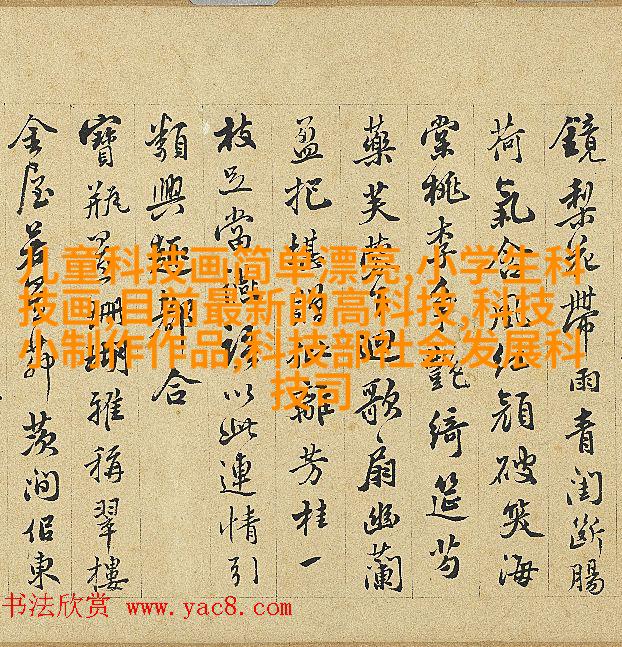 鏡梨花帶雨青閨斷腸
荷氣含風紅顔破笑海
棠桃李爭艷綺筵芍
藥芙蓉迴歌扇幽蘭
盈把堪贈離芳桂一
枝足當以此連情引
類興趣都合
寶瓶珊瑚雅稱翠樓
金屋若靜茨澗侶東
儿童科技画简单漂亮,小学生科
技画,目前最新的高科技,科技
小制作作品,科技部社会发展科
技司
书法欣赏 www.yac8.com